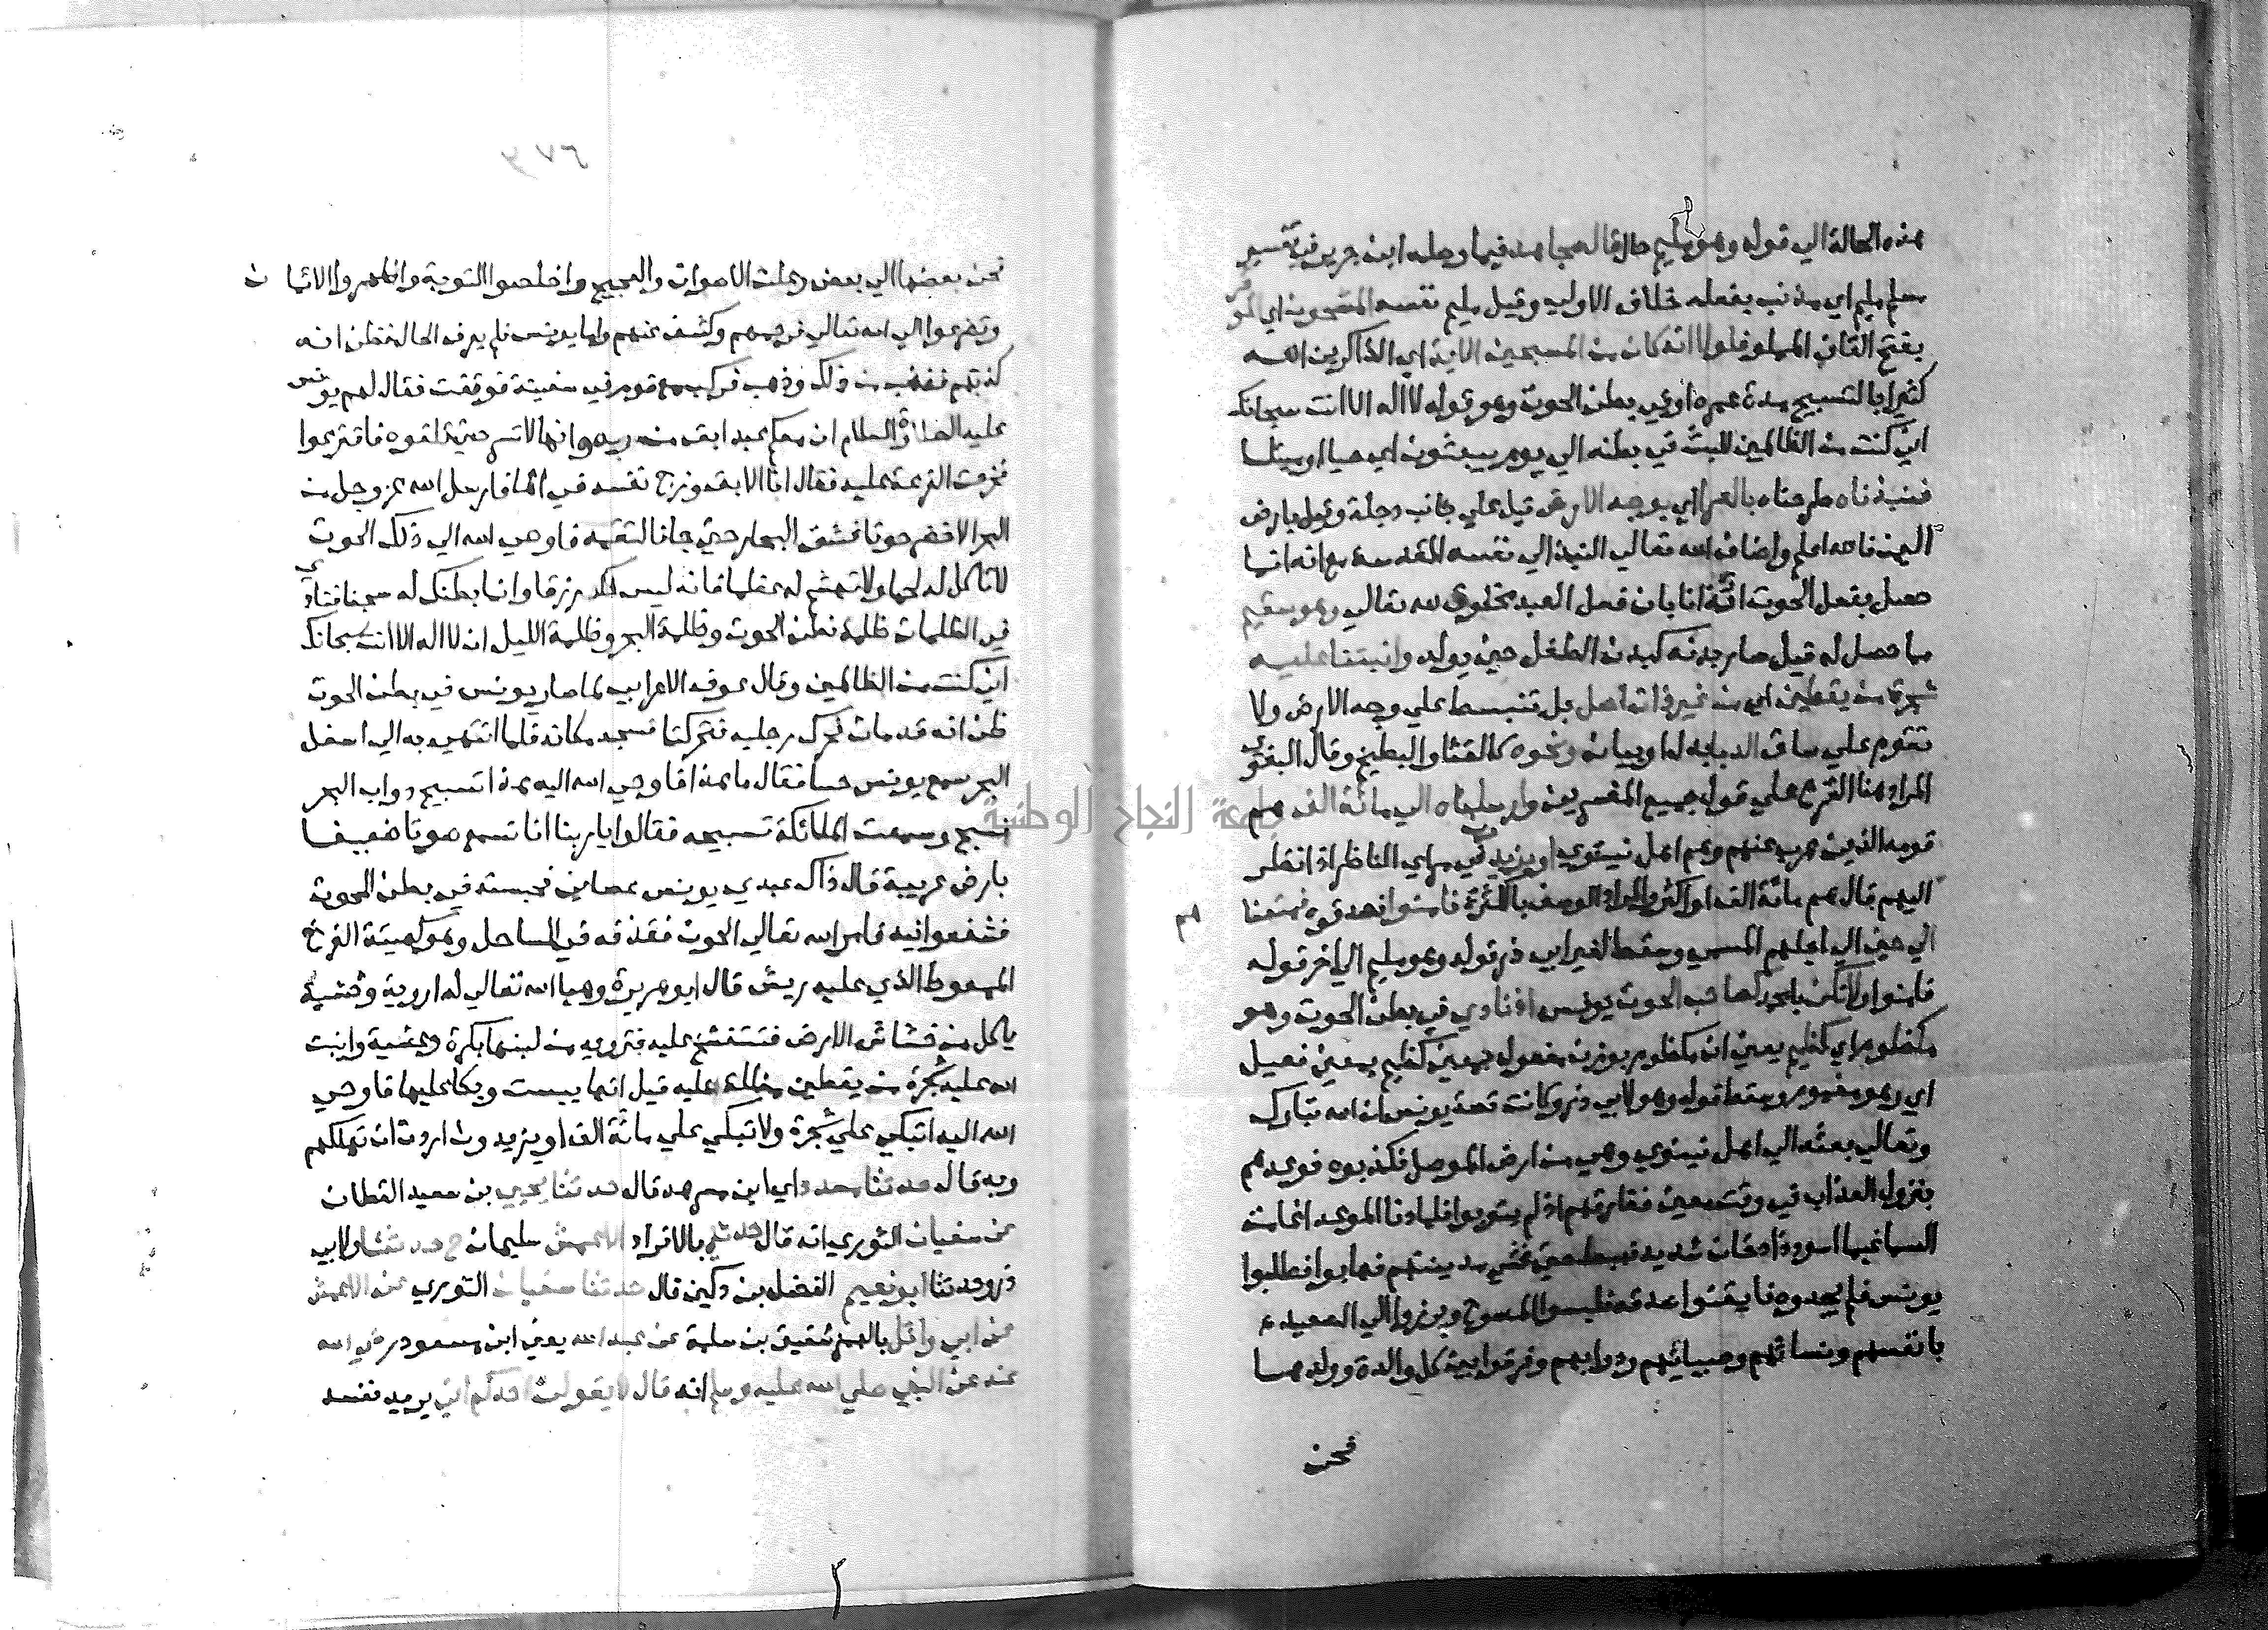 هذه الحالة الي قوله وهو مليم حال قاله مجاهد فيما وصله ابن جرير في تفسير
مليم اي مذنب بفعله خلاف الاولي وقيل مليم نفسه المشحون اي الموقر
بفتح القاف المملو فلولا انه كان من المسبحين الاية اي الذاكرين الله
كثيرا بالتسبيح مدة عمره اوفي بطن الحوت وهو قوله لا اله الا انت سبحانك
اني كنت من الظالمين للبث في بطنه الي يوم يبعثون اي حيا او ميتا
فنبذناه طرحناه بالعرا اي بوجه الارض قيل علي جانب دجلة وقيل بارض
اليمن فالله اعلم واضاف الله تعالي النبذ الي نفسه المقدسة مع انه انما
حصل بفعل الحوت ايذانا بان فعل العبد مخلوق لله تعالي وهو سقيم
مما حصل له قيل صار بدنه كبدن الطفل حين يولد وانبتنا عليه
شجرة من يقطين اي من غير ذات اصل بل تنبسط علي وجه الارض ولا
تقوم علي ساق الدبا بدل او بيان ونحوه كالقثا والبطيخ وقال البغوي
المراد هنا القرع علي قول جميع المفسرين وارسلناه الي مائة الف هم
قومه الذين هرب عنهم وهم اهل نينوي او يزيدون في مراي الناظر اذا نظر
اليهم قال هم مائة الف او اكثر والمراد الوصف بالكثرة فامنوا فصدقوه فمتعناهم
الي حين الي اجلهم المسمي وسقط لغير ابي ذر قوله وهو مليم الي اخر قوله
فامنوا ولا تكن يا محمد كصاحب الحوت يونس اذ نادي في بطن الحوت وهو
مكظوم اي كظيم يعني ان مكظوم بوزن مفعول بمعني كظيم بمعني فعيل
اي وهو مغموم وسقط قوله وهو لابي ذر وكانت قصة يونس ان الله تبارك
وتعالي بعثه الي اهل نينوي وهي من ارض الموصل فكذبوه فوعدهم
بنزول العذاب في وقت معين ففارقهم اذ لم يتوبوا فلما دنا الموعد اغامت
السما غيما اسود ذا دخان شديد فهبط حتي غشي مدينتهم فهابوا فطلبوا
يونس فلم يجدوه فايقنوا صدقه فلبسوا المسوح وبرزوا الي الصعيد
بانفسهم ونسائهم وصبيانهم ودوابهم وفرقوا بين كل والدة وولدها
فحن
فحن بعضها الي بعض وعلت الاصوات والعجيج واخلصوا التوبة واظهروا الايمان
وتضرعوا الي الله تعالي فرحمهم وكشف عنهم واما يونس فلم يعرف الحال فظن انه
كذبهم فغضب من ذلك وذهب فركب مع قوم في سفينة فوقفت فقال لهم يونس
عليه الصلاة والسلام ان معكم عبد ابق من ربه وانها لا تسير حتي تلقوه فاقترعوا
فخرجت القرعة عليه فقال انا الابق وزج نفسه في الما فارسل الله عز وجل من
البحر الاخضر حوتا فشق البحار حتي جا فالتقمه فاوحي الله الي ذلك الحوت
لا تاكل له لحما ولا تهشم له عظما فانه ليس لك رزقا وانما بطنك له سجنا فنادي
في الظلمات ظلمة بطن الحوت وظلمة البحر وظلمة الليل ان لا اله الا انت سبحانك
اني كنت من الظالمين وقال عوف الاعرابي لما صار يونس في بطن الحوت
ظن انه قد مات فحرك رجليه فتحركتا فسجد مكانه فلما انتهي به الي اسفل
البحر سمع يونس حسا فقال ما هذا فاوحي الله اليه هذا تسبيح دواب البحر
فسبح وسمعت الملائكة تسبيحه فقالوا يا ربنا انا نسمع صوتا ضعيفا
بارض غريبة قال ذاك عبدي يونس عصاني فحبسته في بطن الحوت
فشفعوا فيه فامر الله تعالي الحوت فقذفه في الساحل وهو كهيئة الفرخ
الممعوط الذي عليه ريش قال ابو هريرة وهيا الله تعالي له اروية وحشية
ياكل من خشاش الارض فتتفشخ عليه فترويه من لبنها بكرة وعشية وانبت
الله عليه شجرة من يقطين مظللة عليه قيل انها يبست وبكا عليها فاوحي
الله اليه اتبكي علي شجرة ولا تبكي علي مائة الف او يزيدون اردت ان تهلكهم
وبه قال حدثنا مسدد اي ابن مسرهد قال حدثنا يحيي بن سعيد القطان
عن سفيان الثوري انه قال حدثني بالافراد الاعمش سليمان ح حدثنا ولابي
ذر وحدثنا ابو نعيم الفضل بن دكين قال حدثنا سفيان الثوري عن الاعمش
عن ابي وائل بالهمز شقيق بن سلمة عن عبد الله يعني ابن مسعود رضي الله
عنه عن النبي صلي الله عليه وسلم انه قال لا يقولن احدكم اني يريد نفسه
جامعة النجاح الوطنية